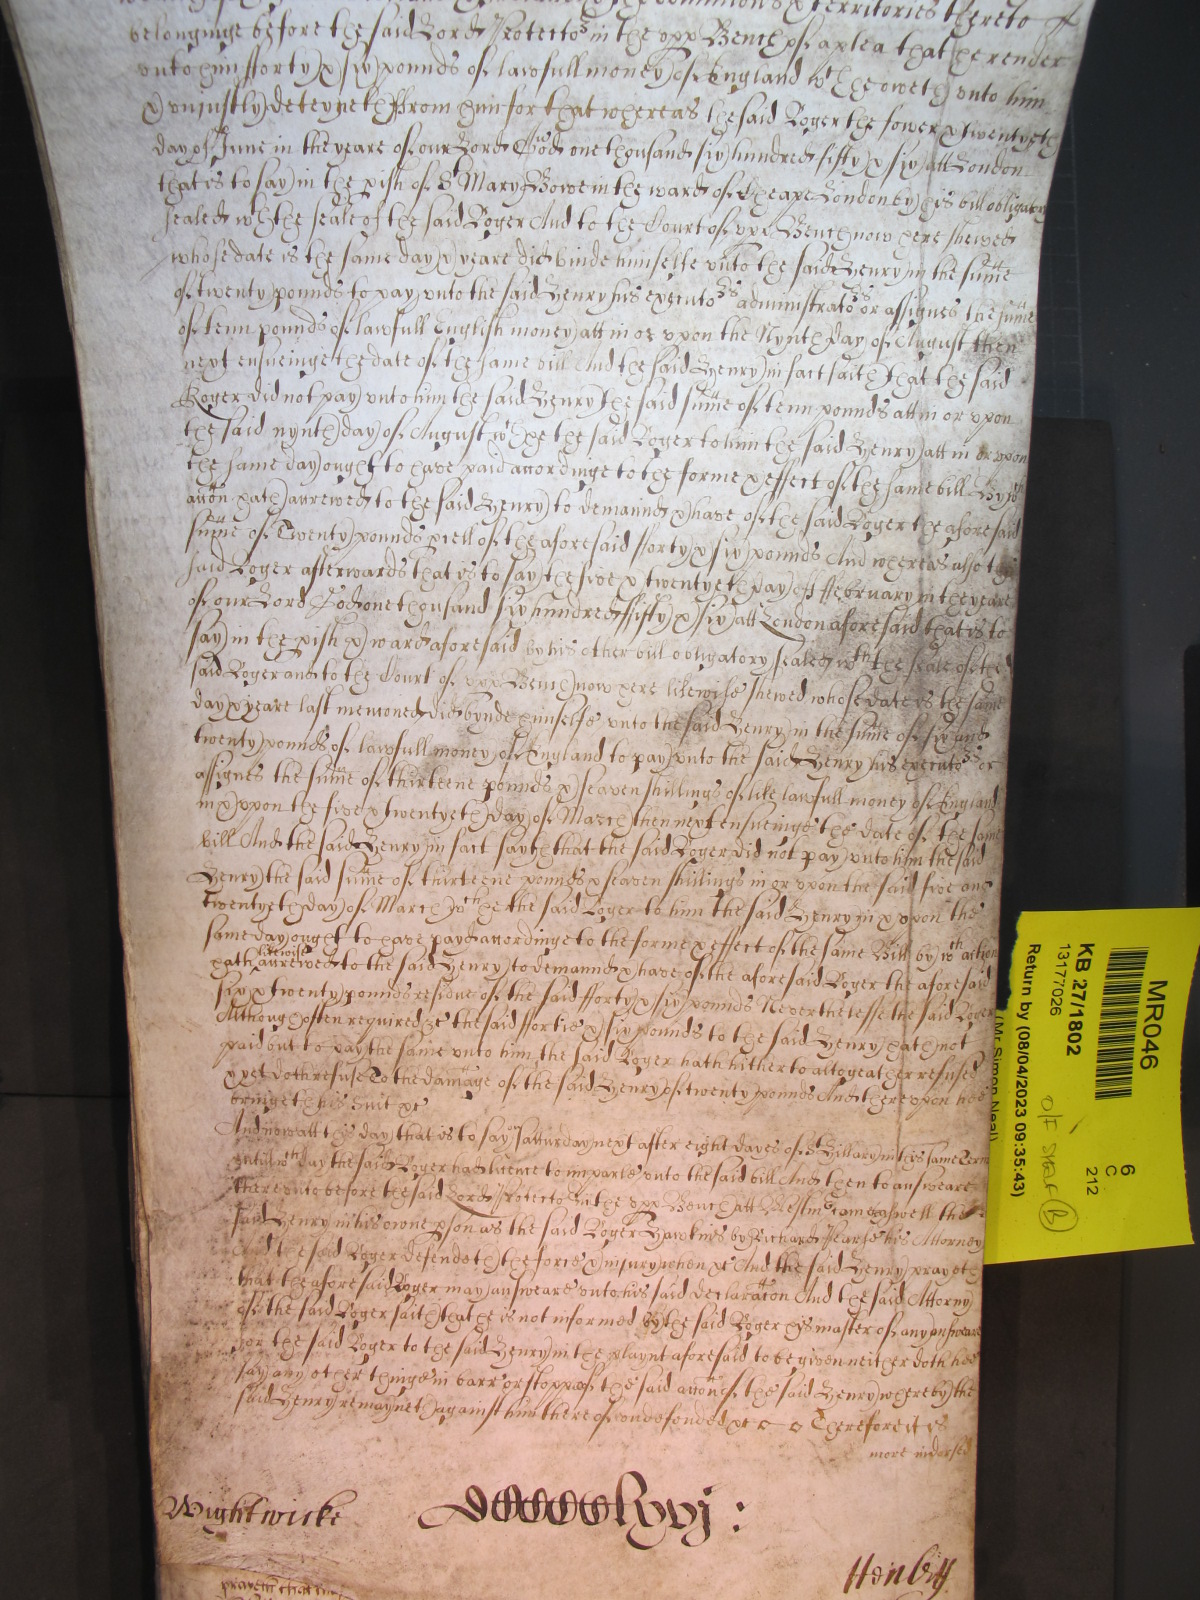 dominions & territories thereto
belonginge before the said Lord Protector in the upp Bench of a plea that he render
unto him fforty & six pounds of lawfull money of England wch he oweth unto him
& uniustly deteyneth ffrom him for that whereas the said Roger the fower & twentyeth
day of June in the yeare of our Lord God one thousand six hundred fifty & six att London
that is to say in the pish of St Mary Bowe in the ward of Cheape London by his bill obligatory
sealed wth the seale of the said Roger And to the Court of upp Bench now here shewed
whose date is the same day & yeare did binde himselfe unto the said Henry in the sume
of twenty pounds to pay unto the said Henry his executors administrators or assignes the sume
of tenn pounds of lawfull English money att in or upon the Nynth day of August then
next ensueinge the date of the same bill And the said Henry in fact saith that the said
Roger did not pay unto him the said Henry the said sume of tenn pounds att in or upon
the said nynth day of August wch he the said Roger to him the said Henry att in or upon
the same day ought to have paid accordinge to the forme & effect of the same bill By wch
accon hath accrewed to the said Henry to demannd & have of the said Roger the aforesaid
sume of Twenty pounds pcell of the aforesaid fforty & six pounds And whereas also the
said Roger afterwards that is to say the five & twentyeth day of ffebruary in the yeare
of our Lord God one thousand six hundred ffifty & six att London aforesaid that is to
say in the pish & ward aforesaid by his other bill obligatory sealed wth the seale of the
said Roger and to the Court of upp Bench now here likewise shewed whose date is the same
day & yeare last menconed did bynde himselfe unto the said Henry in the sume of six and
twenty pounds of lawfull money of England to pay unto the said Henry his executors or
assignes the sume of thirteene pounds & seaven shillings of like lawfull money of England
in & upon the five & twentyeth day of March then next ensueinge the date of the same
bill And the said Henry in fact sayth that the said Roger did not pay unto him the said
Henry the said sume of thirteene pounds & seaven shillings in or upon the said five and
twentyeth day of March wch he the said Roger to him the said Henry in & upon the
same day ought to have payd accordinge to the forme & effect of the same Bill by wch action
hath likewise accrewed to the said Henry to demannd & have of the aforesaid Roger the aforesaid
six & twenty pounds residue of the said fforty & six pounds Neverthelesse the said Roger
Although often required &c the said ffortie & six pounds to the said Henry hath not
paid but to pay the same unto him the said Roger hath hitherto altogeather refused
& yet doth refuse To the damage of the said Henry of twenty pounds And thereupon hee
bringeth his suit &c
And now att this day that is to say Satturday next after eight dayes of St Hillary in this same Terme
untill wch day the said Roger had licence to imparle unto the said bill And then to answeare
thereunto before the said Lord Protector in the upp Bench att Westmr came aswell the
said Henry in his owne pson as the said Roger Hawkins by Richard Pearse his Attorney
And the said Roger defendeth the force & iniury when &c And the said Henry prayeth
that the aforesaid Roger may answeare unto his said declaracon And the said Attorny
of the said Roger saith that he is not informed by the said Roger his master of any answeare
for the said Roger to the said Henry in the playnt aforesaid to be given neither doth hee
say any other thinge in barr or stopp of the said accon of the said Henry whereby the
said Henry remayneth against him thereof undefended &c Therefore it is
more indorsed
Wightwicke
Henley
prayeth that
MR046
6
C
212
KB 27/1802
13177026
O/F SHELF B
(Mr Simon Neal)
Return by (08/04/2023 09:35:43)